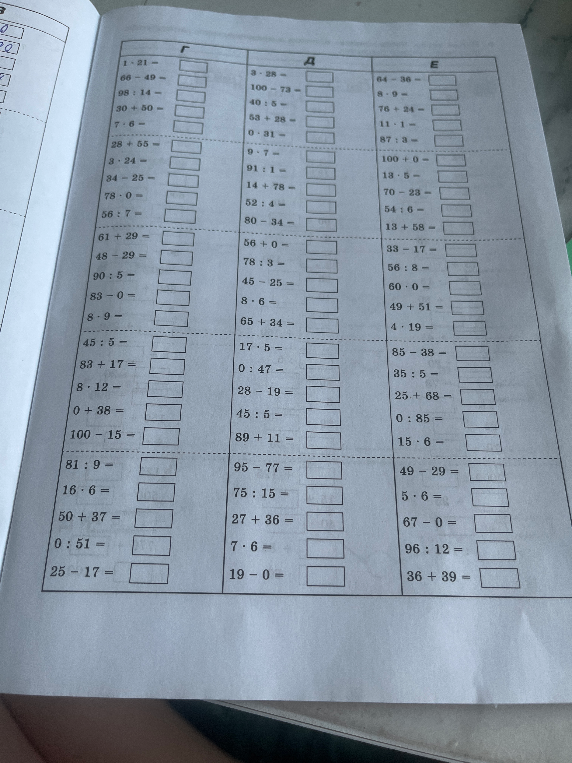 Г
1 · 21 =
68 − 49 =
98 : 14 =
30 + 50 =
7 · 6 =
28 + 55 =
3 · 24 =
34 − 25 =
78 · 0 =
56 : 7 =
61 + 29 =
48 − 29 =
90 : 5 =
83 − 0 =
8 · 9 =
45 : 5 =
83 + 17 =
8 · 12 =
0 + 38 =
100 − 15 =
81 : 9 =
16 · 6 =
50 + 37 =
0 : 51 =
25 − 17 =
Д
3 · 28 =
100 − 73 =
40 : 5 =
53 + 28 =
0 · 31 =
9 · 7 =
91 : 1 =
14 + 78 =
52 : 4 =
80 − 34 =
56 + 0 =
78 : 3 =
45 − 25 =
8 · 6 =
65 + 34 =
17 · 5 =
0 : 47 =
28 − 19 =
45 : 5 =
89 + 11 =
95 − 77 =
75 : 15 =
27 + 36 =
7 · 6 =
19 − 0 =
Е
64 − 36 =
8 · 9 =
76 + 24 =
11 · 1 =
87 : 3 =
100 + 0 =
13 · 5 =
70 − 23 =
54 : 6 =
13 + 58 =
33 − 17 =
56 : 8 =
60 · 0 =
49 + 51 =
4 · 19 =
85 − 38 =
35 : 5 =
25 + 68 =
0 : 85 =
15 · 6 =
49 − 29 =
5 · 6 =
67 − 0 =
96 : 12 =
36 + 39 =